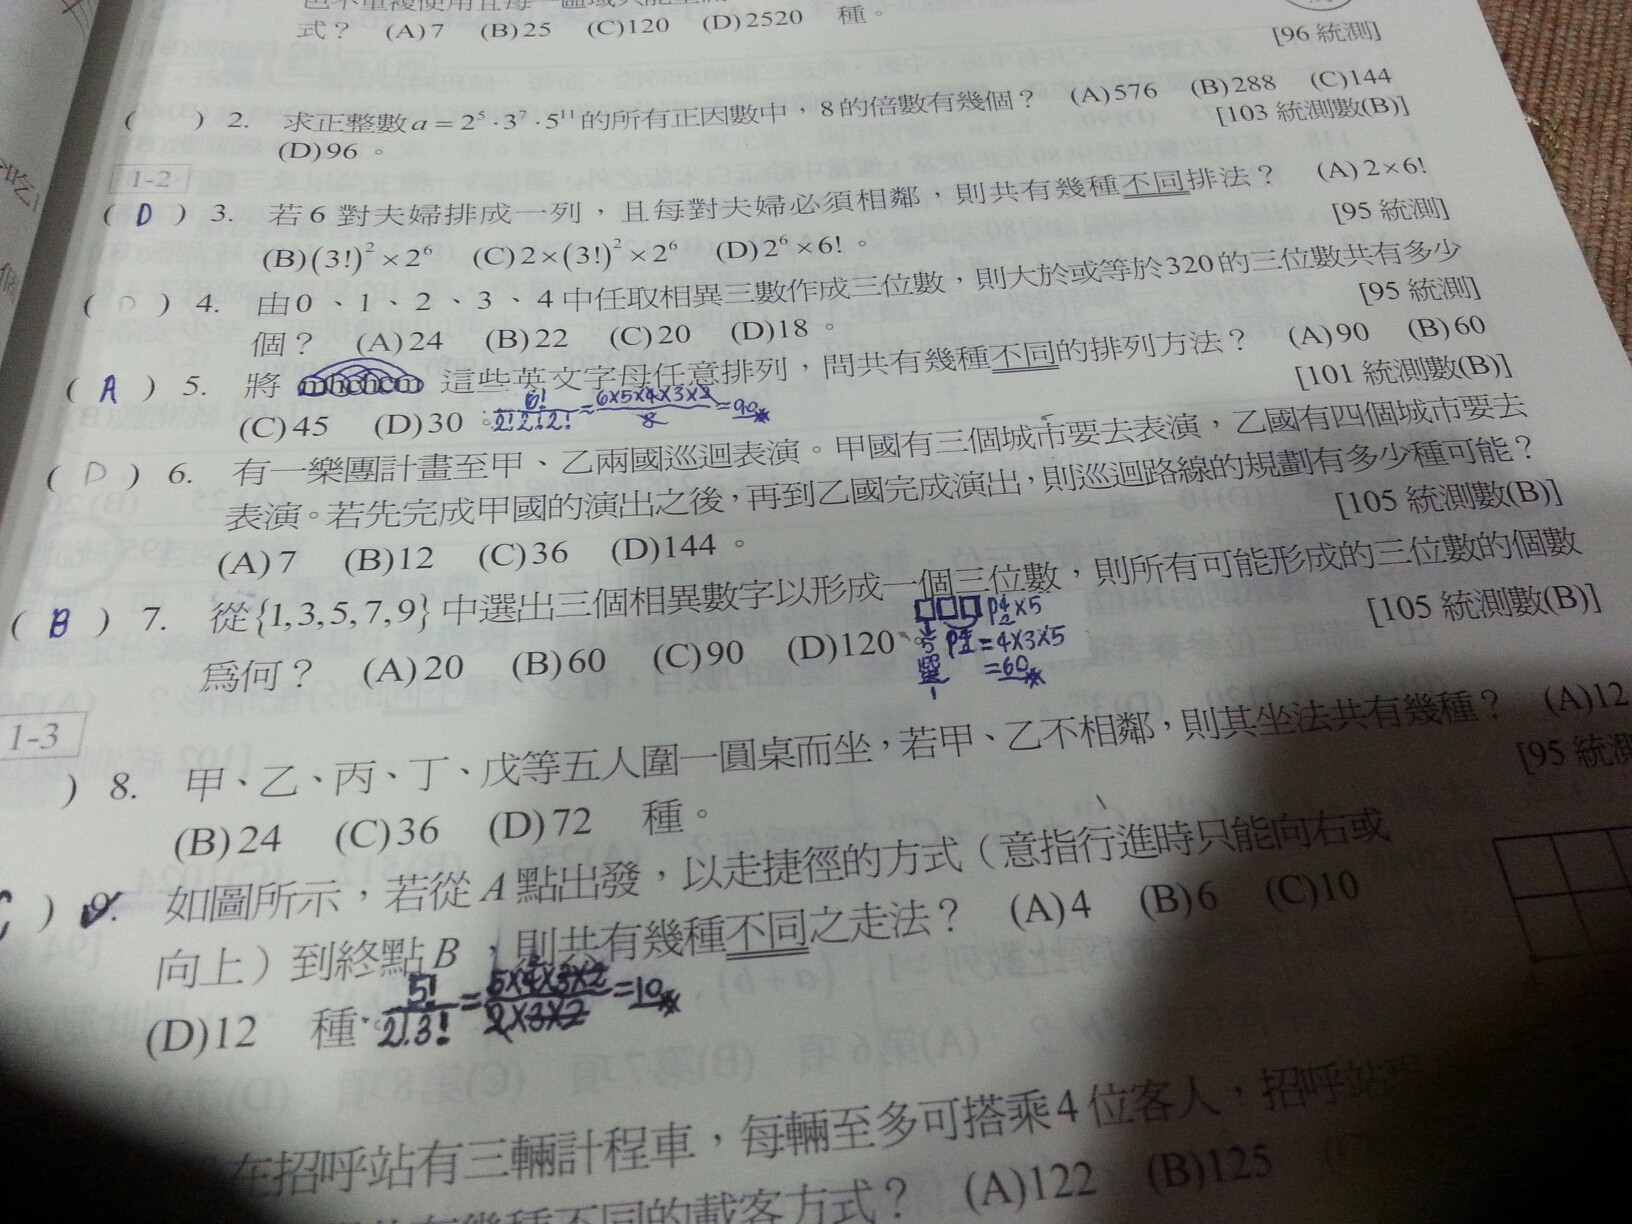 式？ (A)7 (B)25 (C)120 (D)2520 種。
[96 統測]
( ) 2. 求正整數a=2⁵·3⁷·5¹¹的所有正因數中，8的倍數有幾個？ (A)576 (B)288 (C)144
(D)96。 [103 統測數(B)]
1-2
( D ) 3. 若6對夫婦排成一列，且每對夫婦必須相鄰，則共有幾種不同排法？ (A)2×6!
(B)(3!)²×2⁶ (C)2×(3!)²×2⁶ (D)2⁶×6!。 [95 統測]
( D ) 4. 由0、1、2、3、4中任取相異三數作成三位數，則大於或等於320的三位數共有多少
個？ (A)24 (B)22 (C)20 (D)18。 [95 統測]
( A ) 5. 將 這些英文字母任意排列，問共有幾種不同的排列方法？ (A)90 (B)60
(C)45 (D)30。 [101 統測數(B)]
6!/2!2!2! = 6×5×4×3×2/8 = 90
( D ) 6. 有一樂團計畫至甲、乙兩國巡迴表演。甲國有三個城市要去表演，乙國有四個城市要去
表演。若先完成甲國的演出之後，再到乙國完成演出，則巡迴路線的規劃有多少種可能？
(A)7 (B)12 (C)36 (D)144。 [105 統測數(B)]
( B ) 7. 從{1,3,5,7,9}中選出三個相異數字以形成一個三位數，則所有可能形成的三位數的個數
為何？ (A)20 (B)60 (C)90 (D)120。 [105 統測數(B)]
□□□ P⁴₂×5
5 選 1
=4×3×5
=60
1-3
) 8. 甲、乙、丙、丁、戊等五人圍一圓桌而坐，若甲、乙不相鄰，則其坐法共有幾種？ (A)12
(B)24 (C)36 (D)72 種。 [95 統測
C ) 9. 如圖所示，若從A點出發，以走捷徑的方式（意指行進時只能向右或
向上）到終點B，則共有幾種不同之走法？ (A)4 (B)6 (C)10
(D)12 種。
5!/2!3! = 5×4×3×2/2×3×2 = 10
在招呼站有三輛計程車，每輛至多可搭乘4位客人，招呼站
幾種不同的載客方式？ (A)122 (B)125